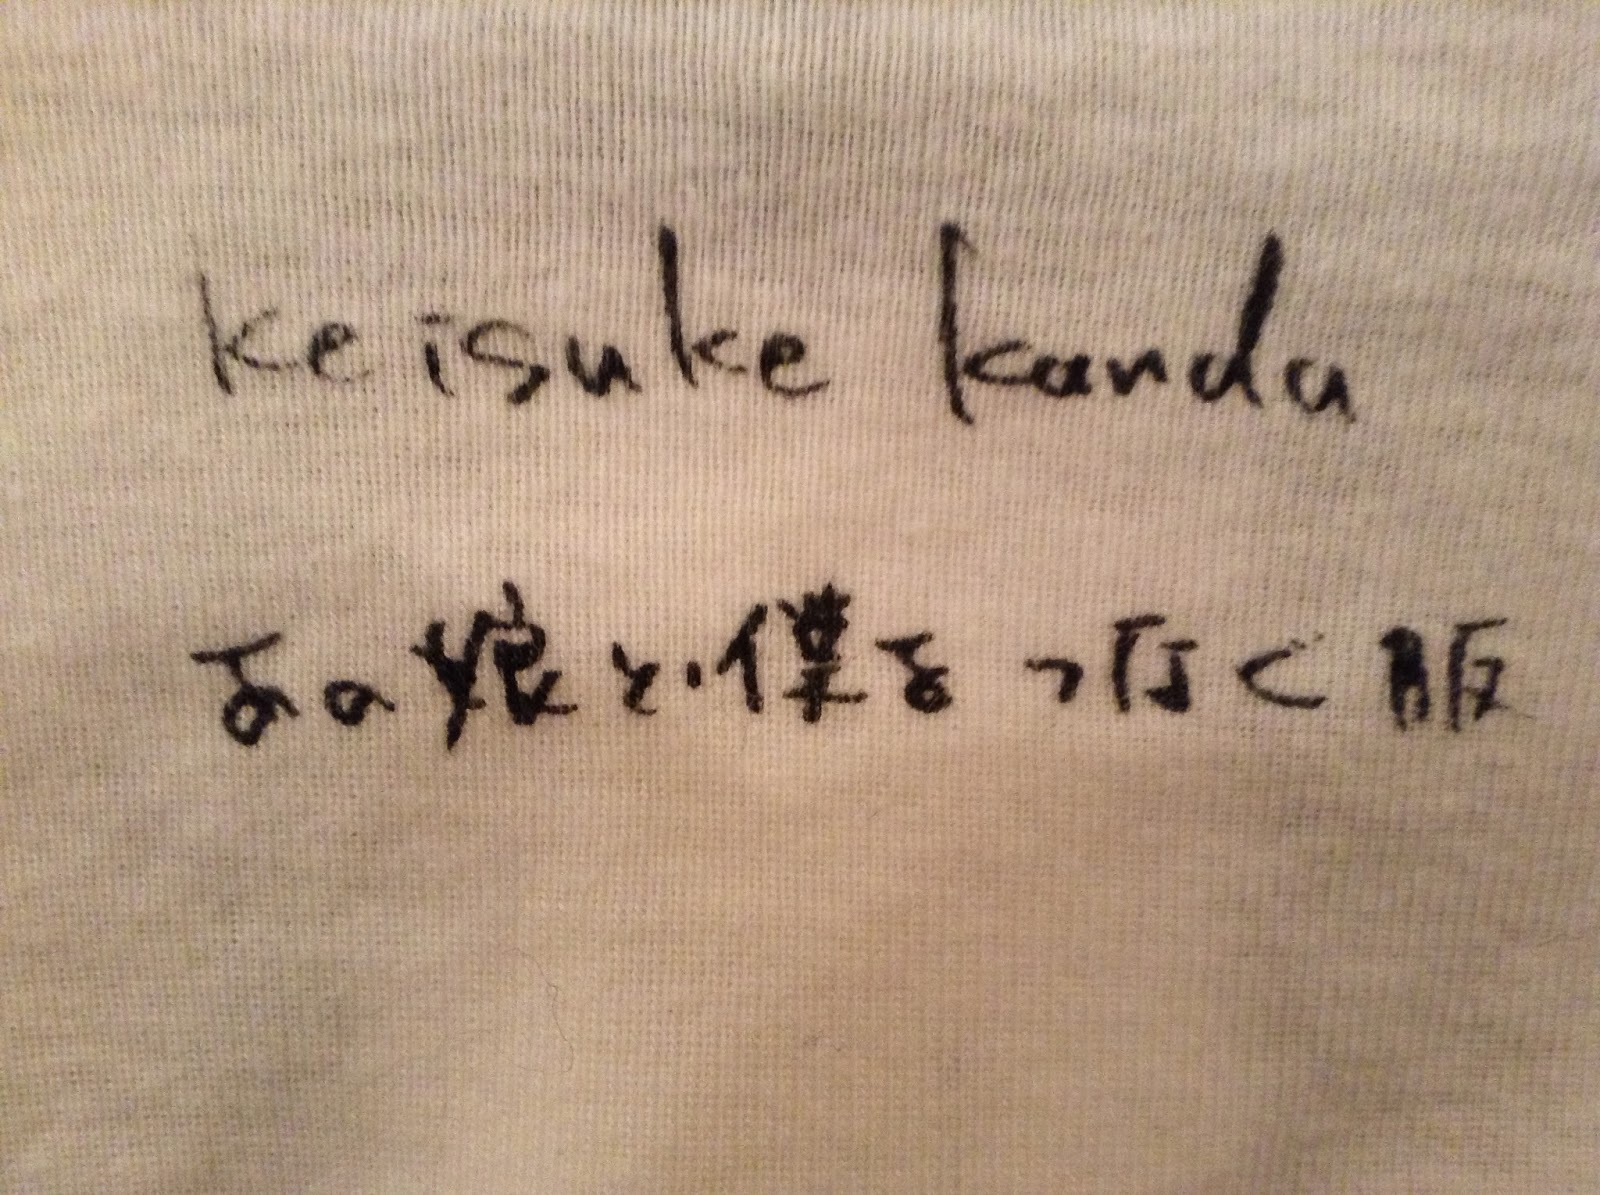 keisuke kanda
あの娘と、僕をつなぐ服